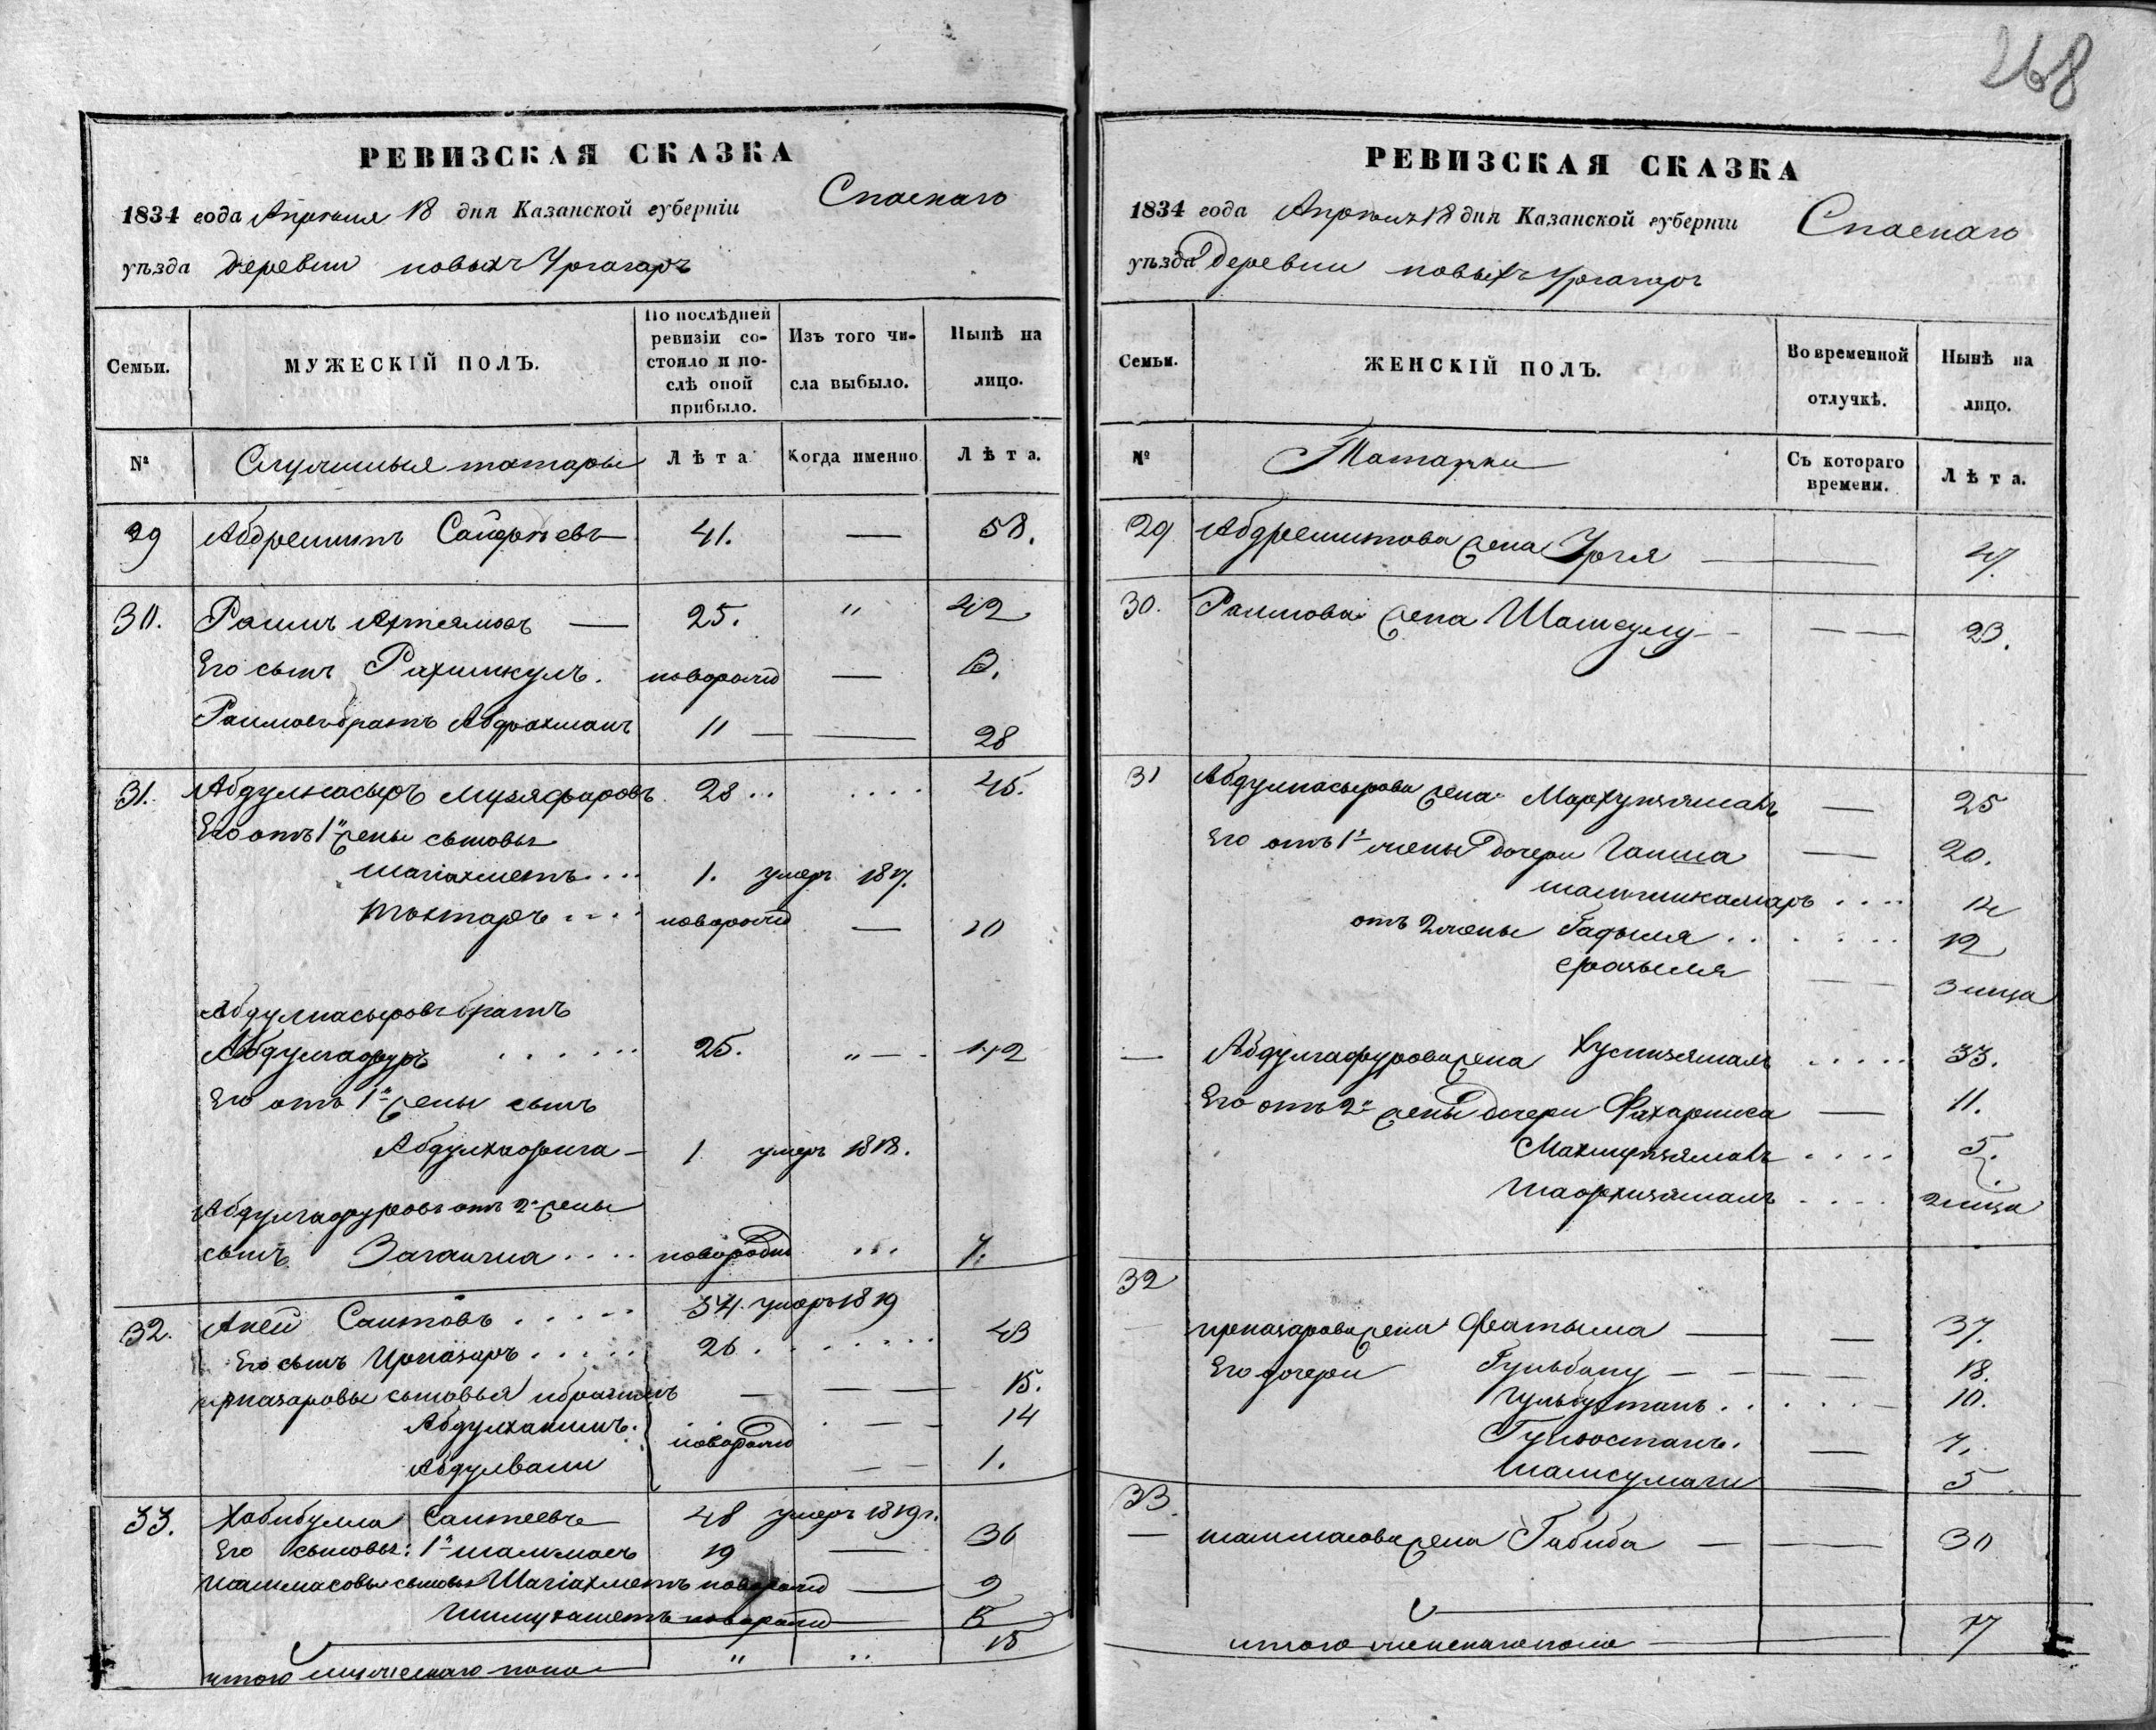 268
РЕВИЗСКАЯ СКАЗКА
1834 года Апреля 18 дня Казанской губерніи Спаскаго
уѣзда деревни новыхъ Ургагаръ
Семьи.
МУЖЕСКІЙ ПОЛЪ.
По послѣдней ревизіи состояло и послѣ оной прибыло.
Изъ того числа выбыло.
Нынѣ на лицо.
№
Служилыя татары
Лѣта
Когда именно
Лѣта.
29 Абдрешитъ Сайфѣевъ 41. — 58.
30. Раимъ Артямовъ — 25. " 42
Его сынъ Рахимкулъ. новорожд — 8.
Раимовъ братъ Абдрахманъ 11 — — 28
31. Абдулнасыръ Музяфаровъ 28 .. .... 45.
Его отъ 1й жены сыновья
Шагіахметъ .... 1. умеръ 1817.
Мохтаръ .... новорожд — 10
Абдулнасыровъ братъ
Абдулгафуръ ...... 25. " — . 42
Его отъ 1й жены сынъ
Абдулхафига — 1 умеръ 1818.
Абдулгафуровъ отъ 2й жены
сынъ .... новорожд ... 7.
32. Апей Саитовъ .... 54. умеръ 1819
Его сынъ Ирназаръ ..... 26 ...... 43
Ирназаровы сыновья Ибрагимъ — — — 15.
Абдулхакимъ. новорожд — — 14
Абдулвали — — 1.
33. Хабибулла Саитеевъ 48 умеръ 1819г.
Его сыновья: 1й Шалимасъ 19 — 36
Шалимасовы сыновья Шагіахметъ новорожд — 9
новорожд 5
итого мужескаго пола " .. 15
РЕВИЗСКАЯ СКАЗКА
1834 года Апреля 18 дня Казанской губерніи Спаскаго
уѣзда Деревни новыхъ Ургагаръ
Семьи.
ЖЕНСКІЙ ПОЛЪ.
Во временной отлучкѣ.
Нынѣ на лицо.
№
Татарки
Съ котораго времени.
Лѣта.
29 Абдрешитова жена Урия — 47.
30. Раимова жена Шамсулу — — — 23.
31 Абдулнасырова жена — 25
Его отъ 1й жены дочери Гаиша — 20.
Шамшикамаръ .... 14
отъ 2 жены Бадыля ...... 12
Фазыля — — 3 мѣсца
— Абдулгафурова жена Хуснизямалъ ..... 33.
Его отъ 2й жены дочери Фахарниса — 11.
.... 5.
.... 2 мѣсца
32
Ирназарова жена Фатыма — — 37.
Его дочери Гульбану — — — — 18.
Гульбустанъ ..... — 10.
Гульюстанъ. — 7.
— 5
33.
— Шалимасова жена Габиба — — 30
итого женскаго пола — 17